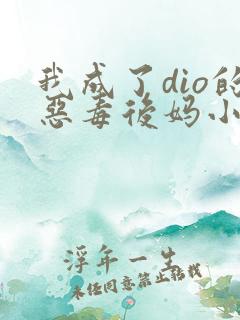 我成了dio的
惡毒後妈小
浮年一生
未经同意禁止转载